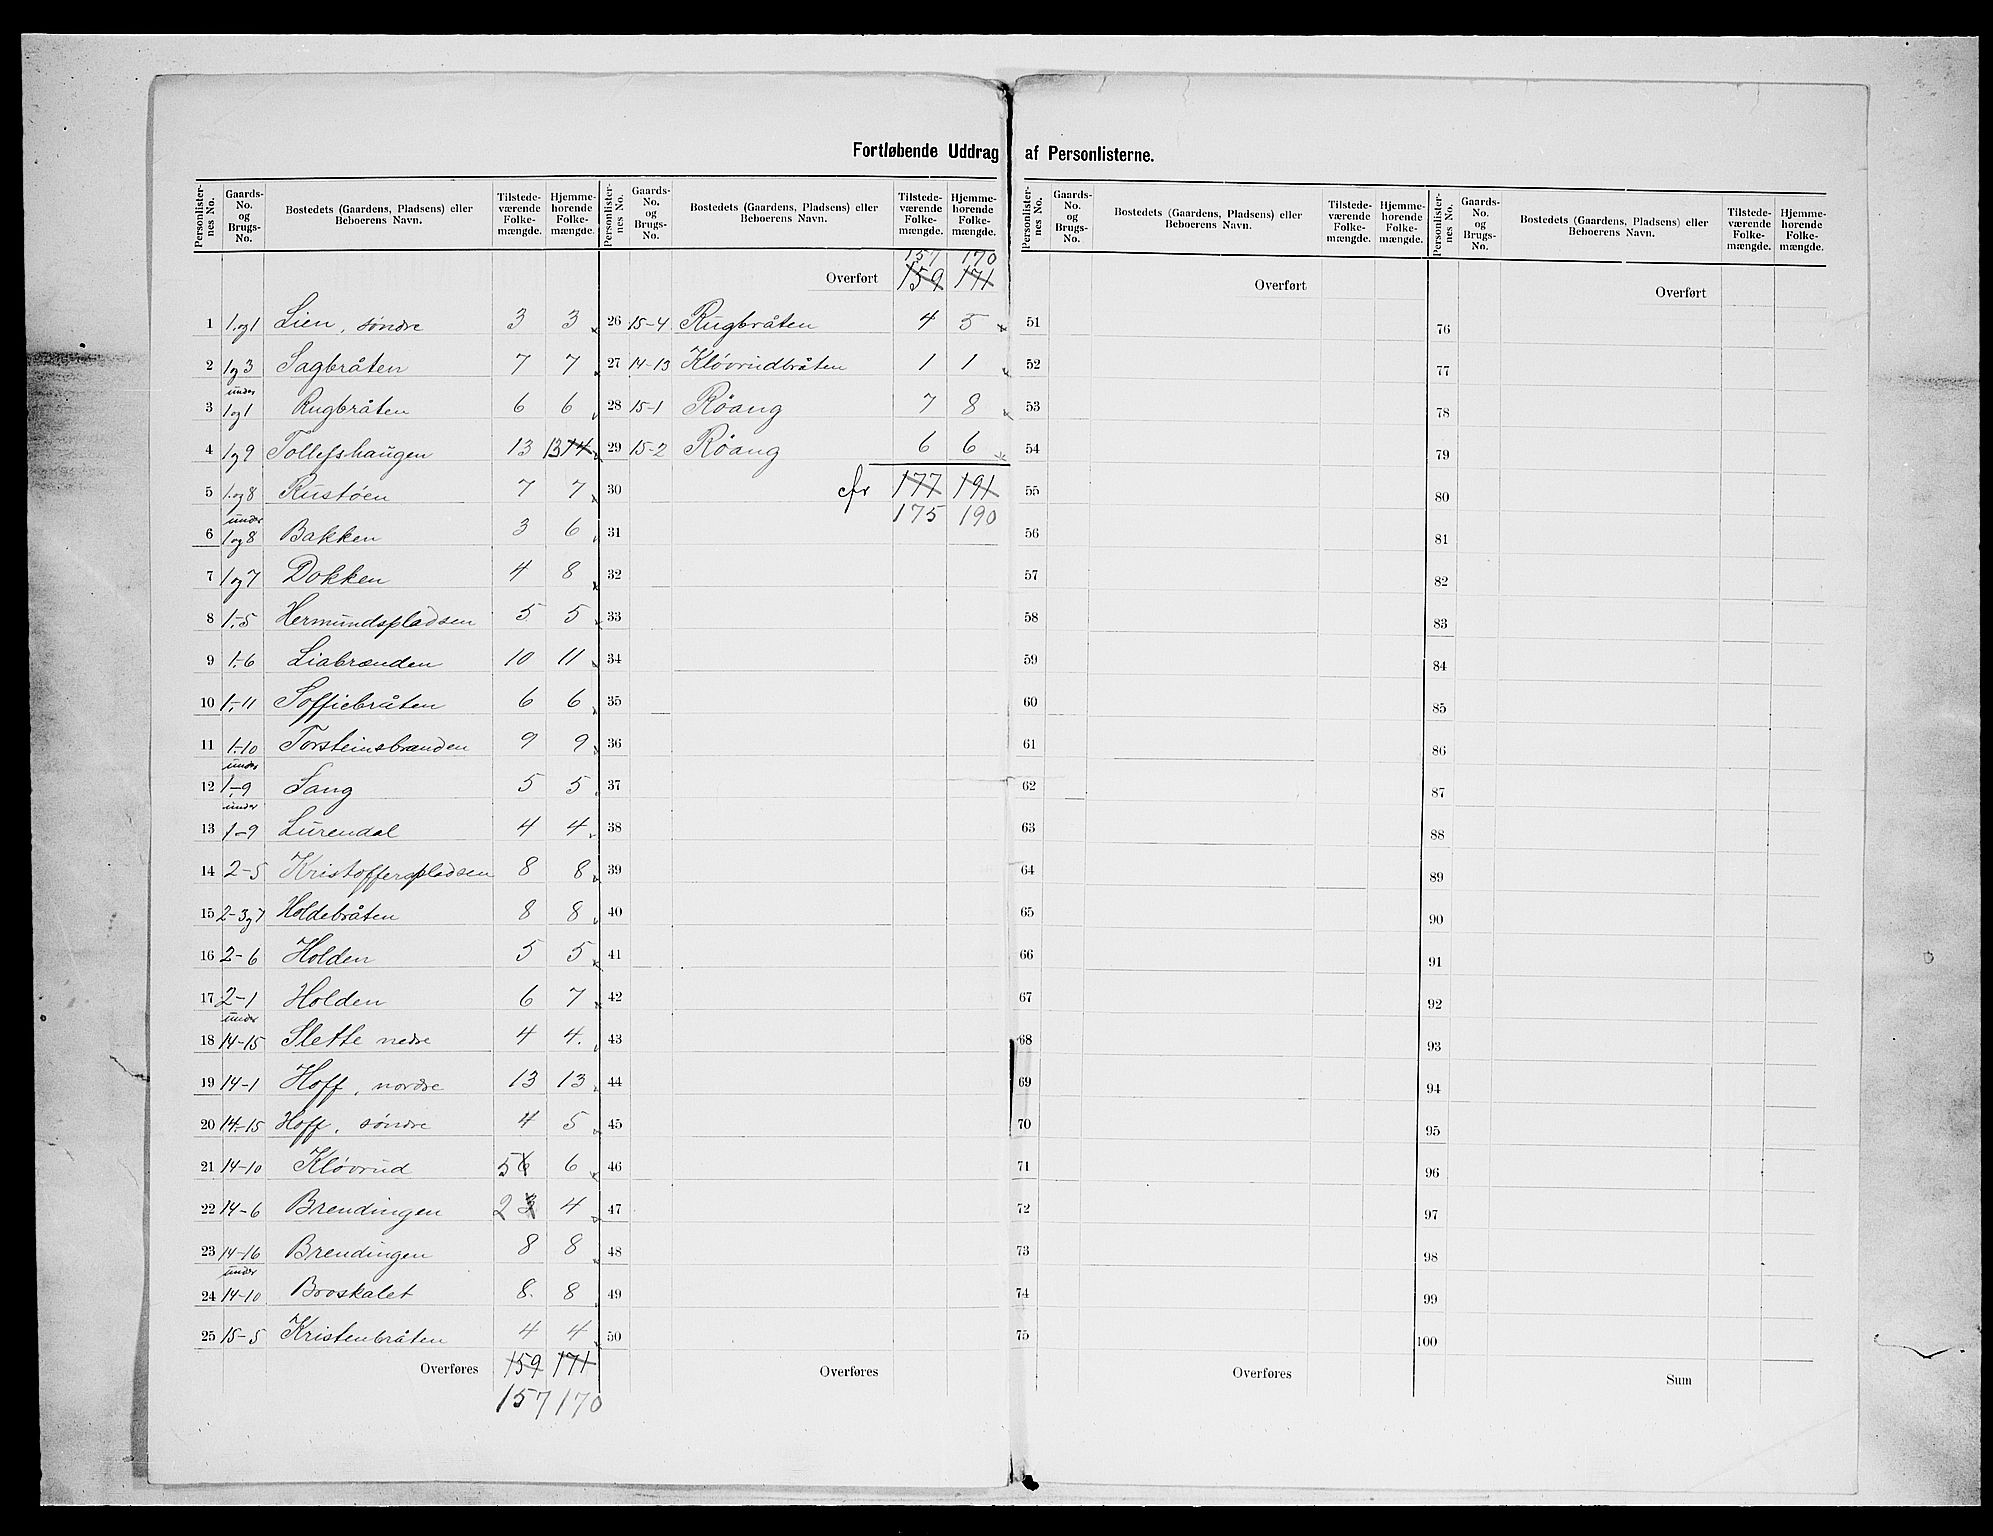 Fortløbende Uddrag af Personlisternе.
Personlister-nes No. | Gaards-No. og Brugs-No. | Bostedets (Gaardens, Pladsens) eller Beboerens Navn. | Tilstede-værende Folke-mængde. | Hjemme-hørende Folke-mængde.
1 1.og1 Lien, søndre 3 3
2 1og3 Sagbråten 7 7
under
3 1og1 Rugbråten 6 6
4 1og9 Tollefshaugen 13 13 14
5 1.og8 Rustøen 7 7
under
6 1og8 Bakken 3 6
7 1og7 Dokken 4 8
8 1.-5 Hermundspladsen 5 5
9 1.-6 Liabrænden 10 11
10 1.-11 Soffiebråten 6 6
11 1.-10 Torsteinsbrænden 9 9
under
12 1-9 Sang 5 5
under
13 1-9 Lurendal 4 4
14 2-5 Kristofferspladsen 8 8
15 2-3og7 Holdebråten 8 8
16 2-6 Holden 5 5
17 2-1 Holden 6 7
under
18 14-15 Slette nedre 4 4.
19 14-1 Hoff, nordre 13 13
20 14-15 Hoff, søndre 4 5
21 14-10 Kløvrud 5 6 6
22 14-6 Brendingen 2 3 4
23 14-16 Brendingen 8 8
under
24 14-10 Broskalet 8. 8
25 15-5 Kristenbråten 4 4
Overføres 159 171
157 170
Personlister-nes No. | Gaards-No. og Brugs-No. | Bostedets (Gaardens, Pladsens) eller Beboerens Navn. | Tilstede-værende Folke-mængde. | Hjemme-hørende Folke-mængde.
157 170
Overført 159 171
26 15-4 Rugbråten 4 5
27 14-13 Kløvrudbråten 1 1
28 15-1 Røang 7 8
29 15-2 Røang 6 6
30 cfr 177 191
175 190
31
32
33
34
35
36
37
38
39
40
41
42
43
44
45
46
47
48
49
50
Overføres
Personlister-nes No. | Gaards-No. og Brugs-No. | Bostedets (Gaardens, Pladsens) eller Beboerens Navn. | Tilstede-værende Folke-mængde. | Hjemme-hørende Folke-mængde.
Overført
51
52
53
54
55
56
57
58
59
60
61
62
63
64
65
66
67
68
69
70
71
72
73
74
75
Overføres
Personlister-nes No. | Gaards-No. og Brugs-No. | Bostedets (Gaardens, Pladsens) eller Beboerens Navn. | Tilstede-værende Folke-mængde. | Hjemme-hørende Folke-mængde.
Overført
76
77
78
79
80
81
82
83
84
85
86
87
88
89
90
91
92
93
94
95
96
97
98
99
100
Sum